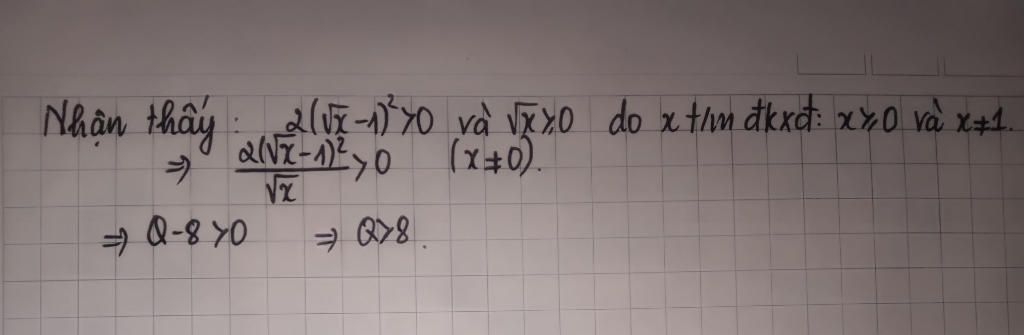 Nhận thấy: 2(√x-1)²>0 và √x⩾0 do x t/m đkxđ: x⩾0 và x≠1.
⇒ 2(√x-1)²/√x >0 (x≠0).
⇒ Q-8>0 ⇒ Q>8.